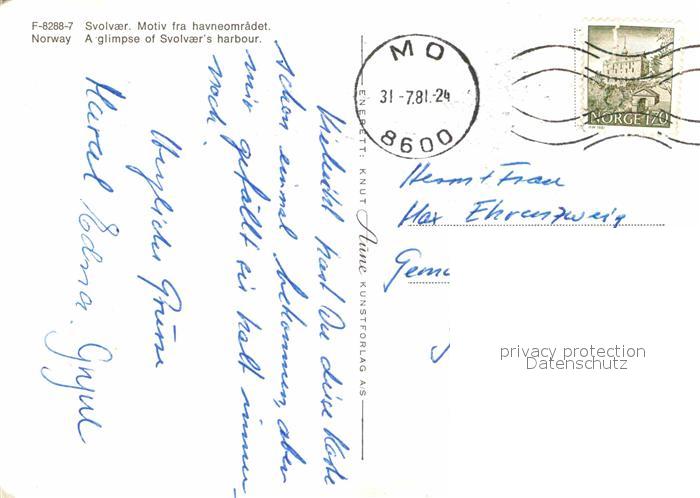 F-8288-7 Svolvær. Motiv fra havneområdet.
Norway A glimpse of Svolvær's harbour.
Vielleicht hast Du diese Karte
schon einmal bekommen, aber
mir gefällt sie halt immer
noch!
Herzliche Grüsse
Harald Edna
ENERETT: KNUT Aune KUNSTFORLAG A/S
MO
31-7.81.-24
8600
NORGE 170
Herrn + Frau
Max Ehrenzweig
privacy protection
Datenschutz